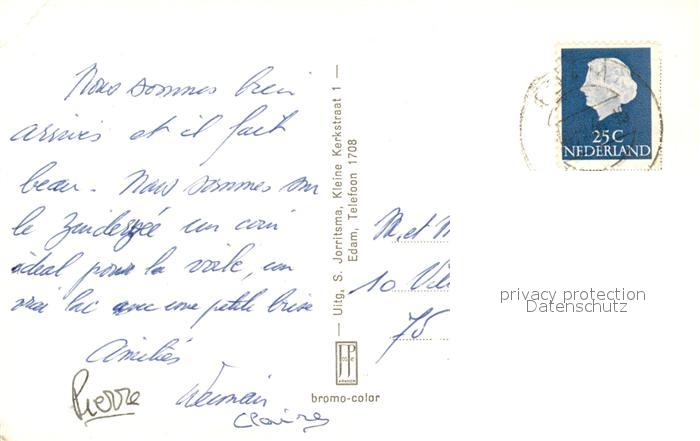 Nous sommes bien
arrivés et il fait
beau. Nous sommes sur
le Zuiderzée un coin
idéal pour la voile, un
vrai lac avec une petite brise
Amitiés
Pierre
Claire
Uitg. S. Jorritsma, Kleine Kerkstraat 1
Edam, Telefoon 1708
bromo-color
25C
NEDERLAND
M. et M
10
75
privacy protection
Datenschutz